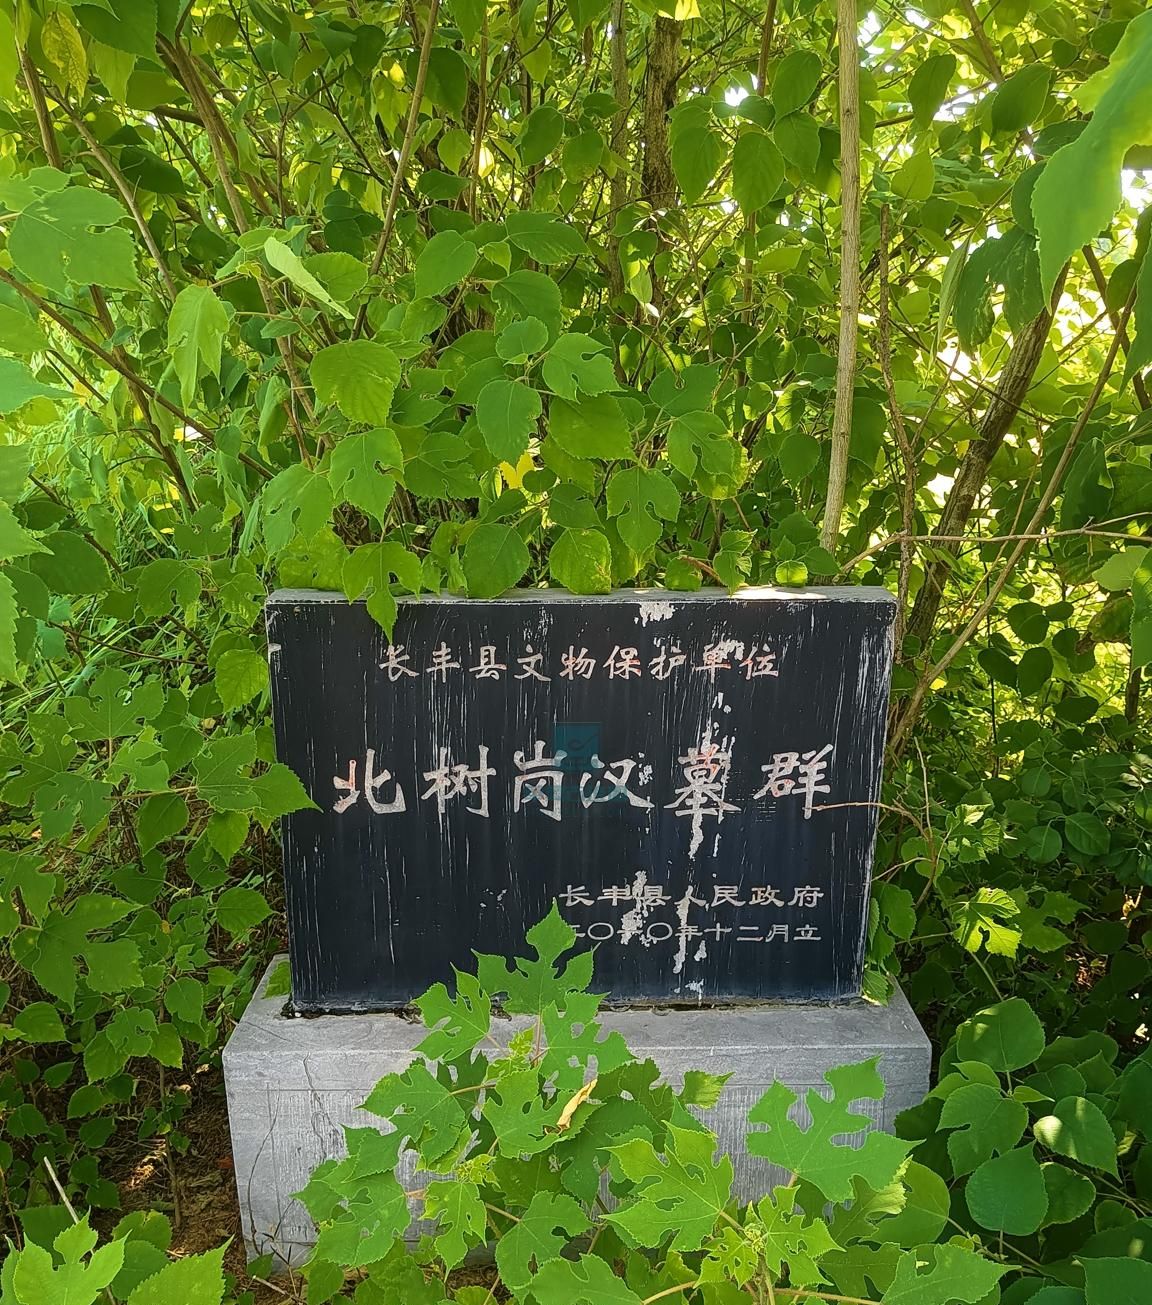 长丰县文物保护单位
北树岗汉墓群
长丰县人民政府
二〇一〇年十二月立